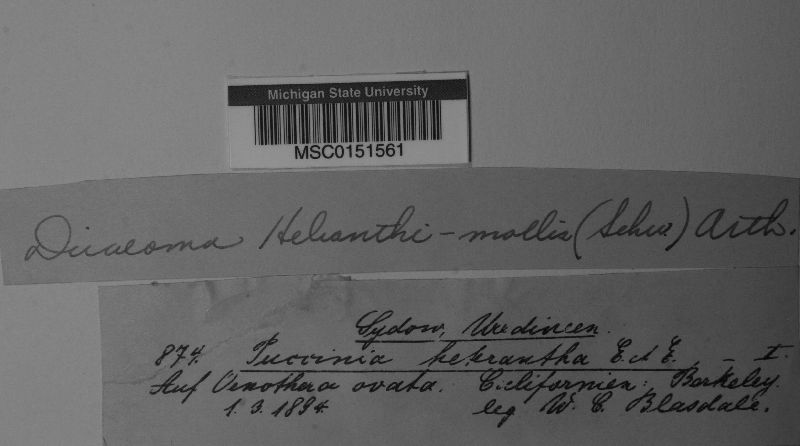 Michigan State University
MSC0151561
Dicaeoma Helianthi-mollis (Schw.) Arth.
Sydow, Uredineen.
874. Puccinia heterantha E. et E. – I.
Auf Oenothera ovata. Californien: Berkeley.
1. 3. 1894. leg W. C. Blasdale.